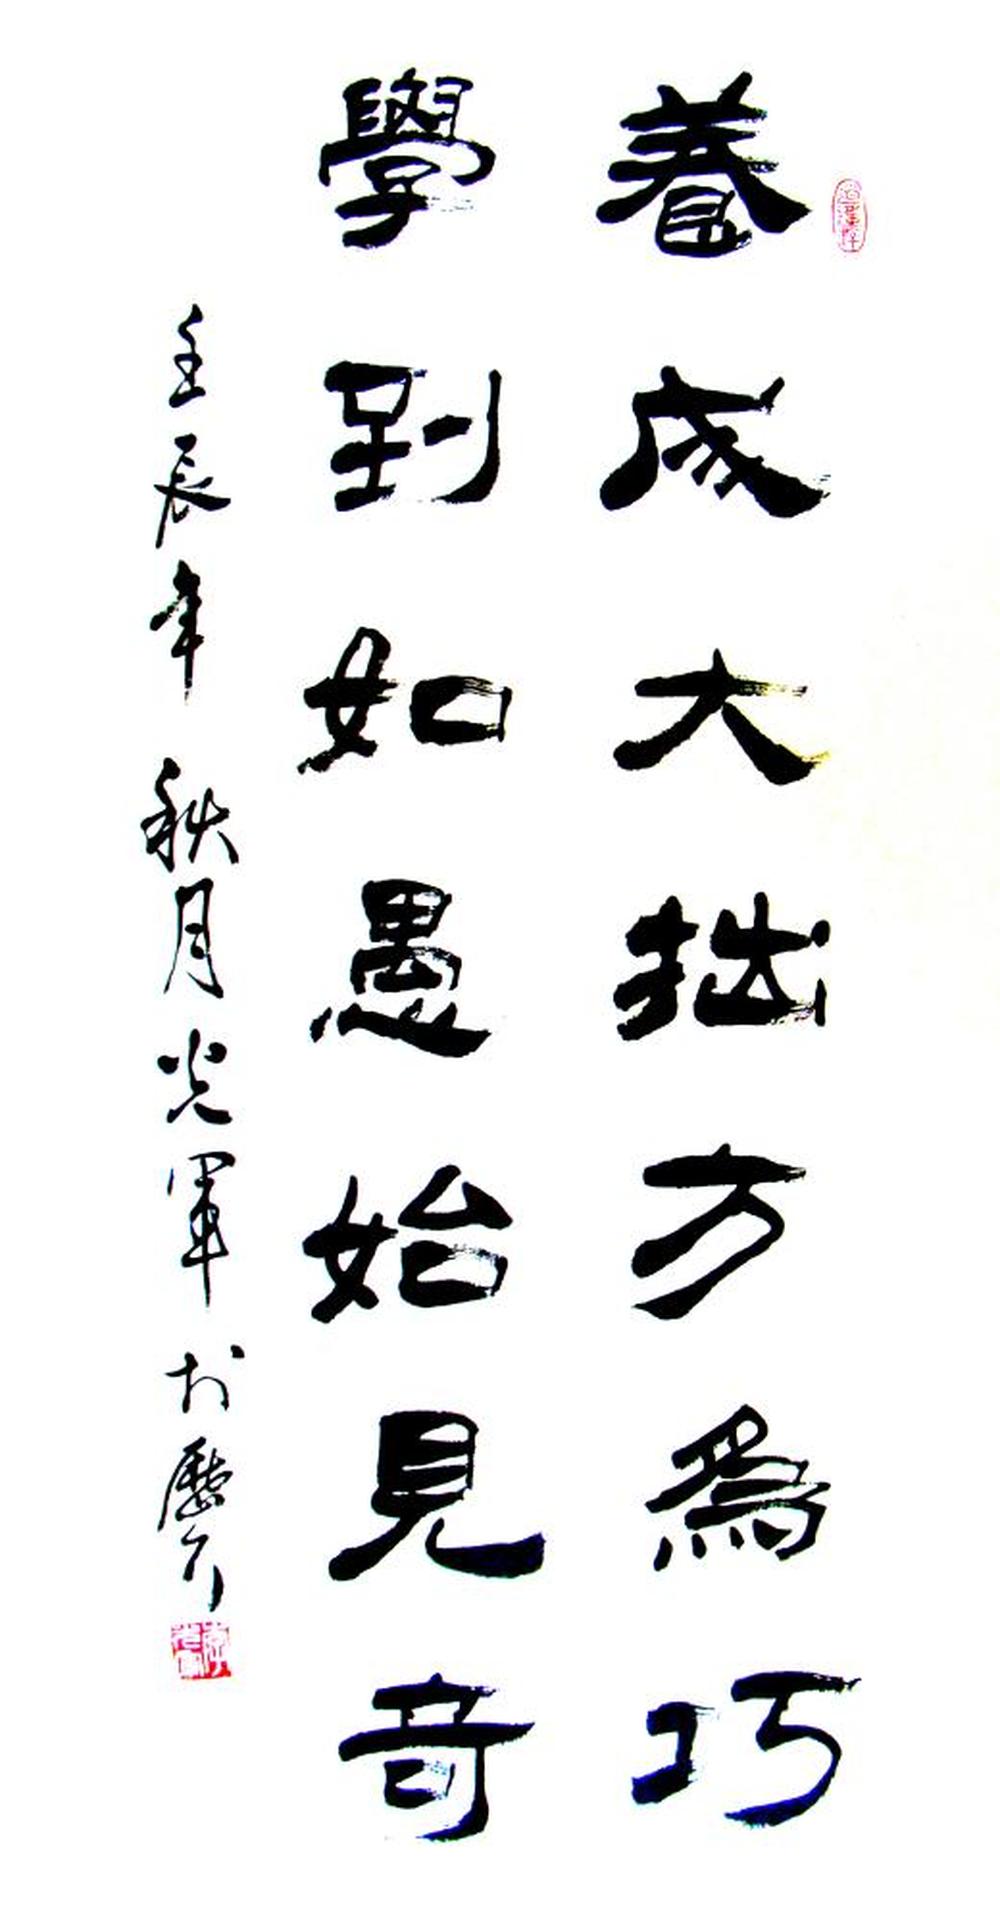 養成大拙方為巧
學到如愚始見奇
壬辰年秋月光軍於歷下